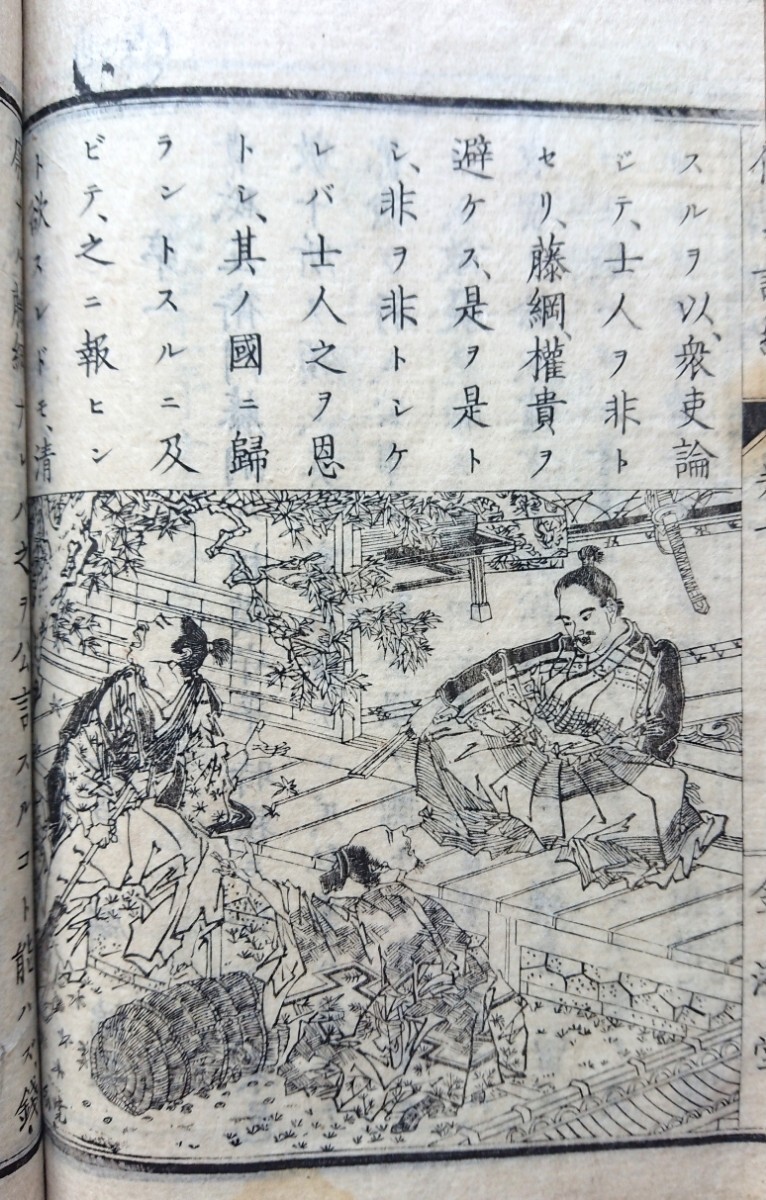 スルヲ以、衆吏論
ジテ、士人ヲ非ト
セリ、藤綱、權貴ヲ
避ケス、是ヲ是ト
シ、非ヲ非トシケ
レバ士人之ヲ恩
トシ、其ノ國ニ歸
ラントスルニ及
ビテ、之ニ報ヒン
ト欲スレドモ、清
ハ之ヲ公言スルコト能ハズ錢